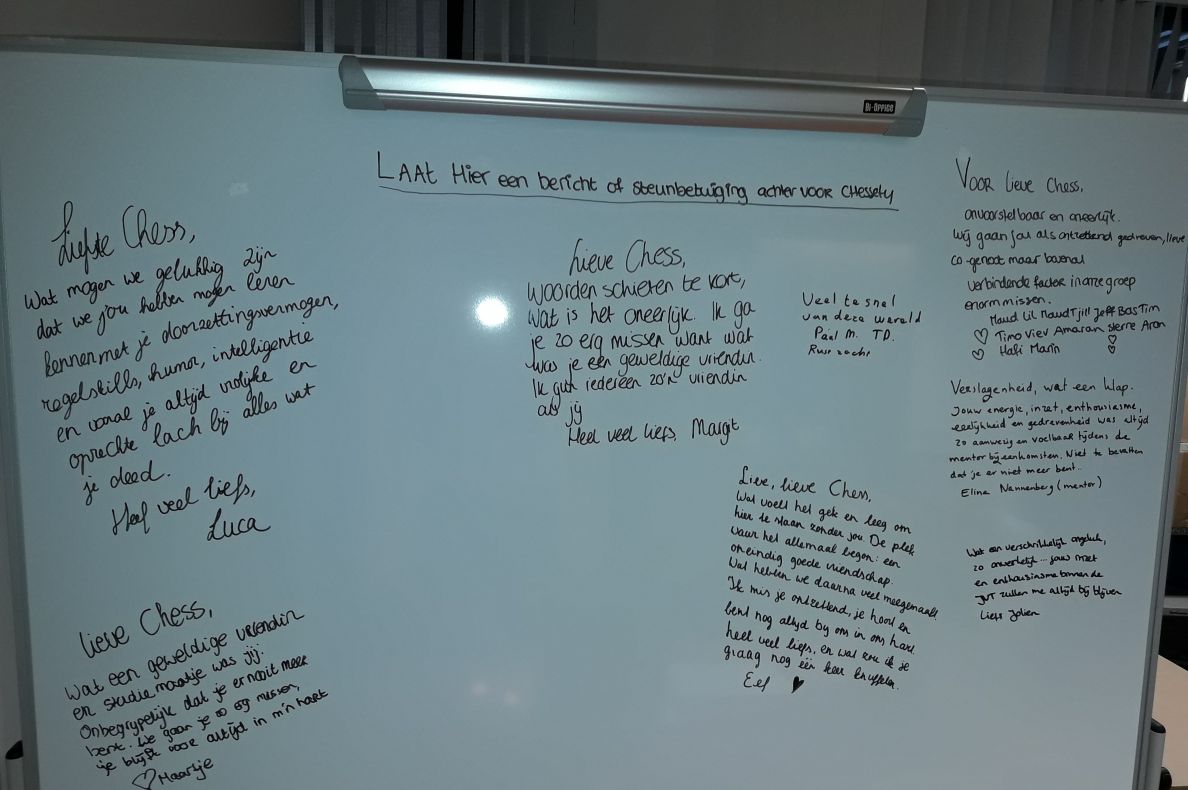 Bi-Office
LAAT Hier een bericht of steunbetuiging achter voor Chessely
Liefste Chess,
Wat mogen we gelukkig zijn
dat we jou hebben mogen leren
kennen met je doorzettingsvermogen,
regelskills, humor, intelligentie
en vooral je altijd vrolijke en
oprechte lach bij alles wat
je deed.
Heel veel liefs,
Luca
Lieve Chess,
Wat een geweldige vriendin
en studiemaatje was jij.
Onbegrijpelijk dat je er nooit meer
bent. We gaan je zo erg missen,
je blijft voor altijd in m'n hart
♡ Maartje
Lieve Chess,
woorden schieten te kort,
wat is het oneerlijk. Ik ga
je zo erg missen want wat
was je een geweldige vriendin.
Ik gun iedereen zo'n vriendin
als jij
Heel veel liefs, Margit
Veel te snel
van deze wereld
Paul M. TD.
Rust zacht
Lieve, lieve Chess,
Wat voelt het gek en leeg om
hier te staan zonder jou. De plek
waar het allemaal begon: een
oneindig goede vriendschap.
Wat hebben we daarna veel meegemaakt
Ik mis je ontzettend, je hoort en
bent nog altijd bij ons in ons hart.
heel veel liefs, en wat zou ik je
graag nog één keer knuffelen.
Eef ♥
Voor lieve Chess,
onvoorstelbaar en oneerlijk.
Wij gaan jou als ontzettend gedreven, lieve
co-genoot maar bovenal
verbindende factor in onze groep
enorm missen.
Maud Lil Maud Tjill Jeff Bas Tim
♡ Timo Viev Amaran sterre Aron
♡ Hafi Marin ♡ ♡
Verslagenheid, wat een klap.
Jouw energie, inzet, enthousiasme,
eerlijkheid en gedrevenheid was altijd
zo aanwezig en voelbaar tijdens de
mentor bijeenkomsten. Niet te bevatten
dat je er niet meer bent..
Eline Nannenberg (mentor)
Wat een verschrikkelijk ongeluk,
zo onwerkelijk... jouw inzet
en enthousiasme binnen de
JVT zullen me altijd bij blijven
Liefs Jolien